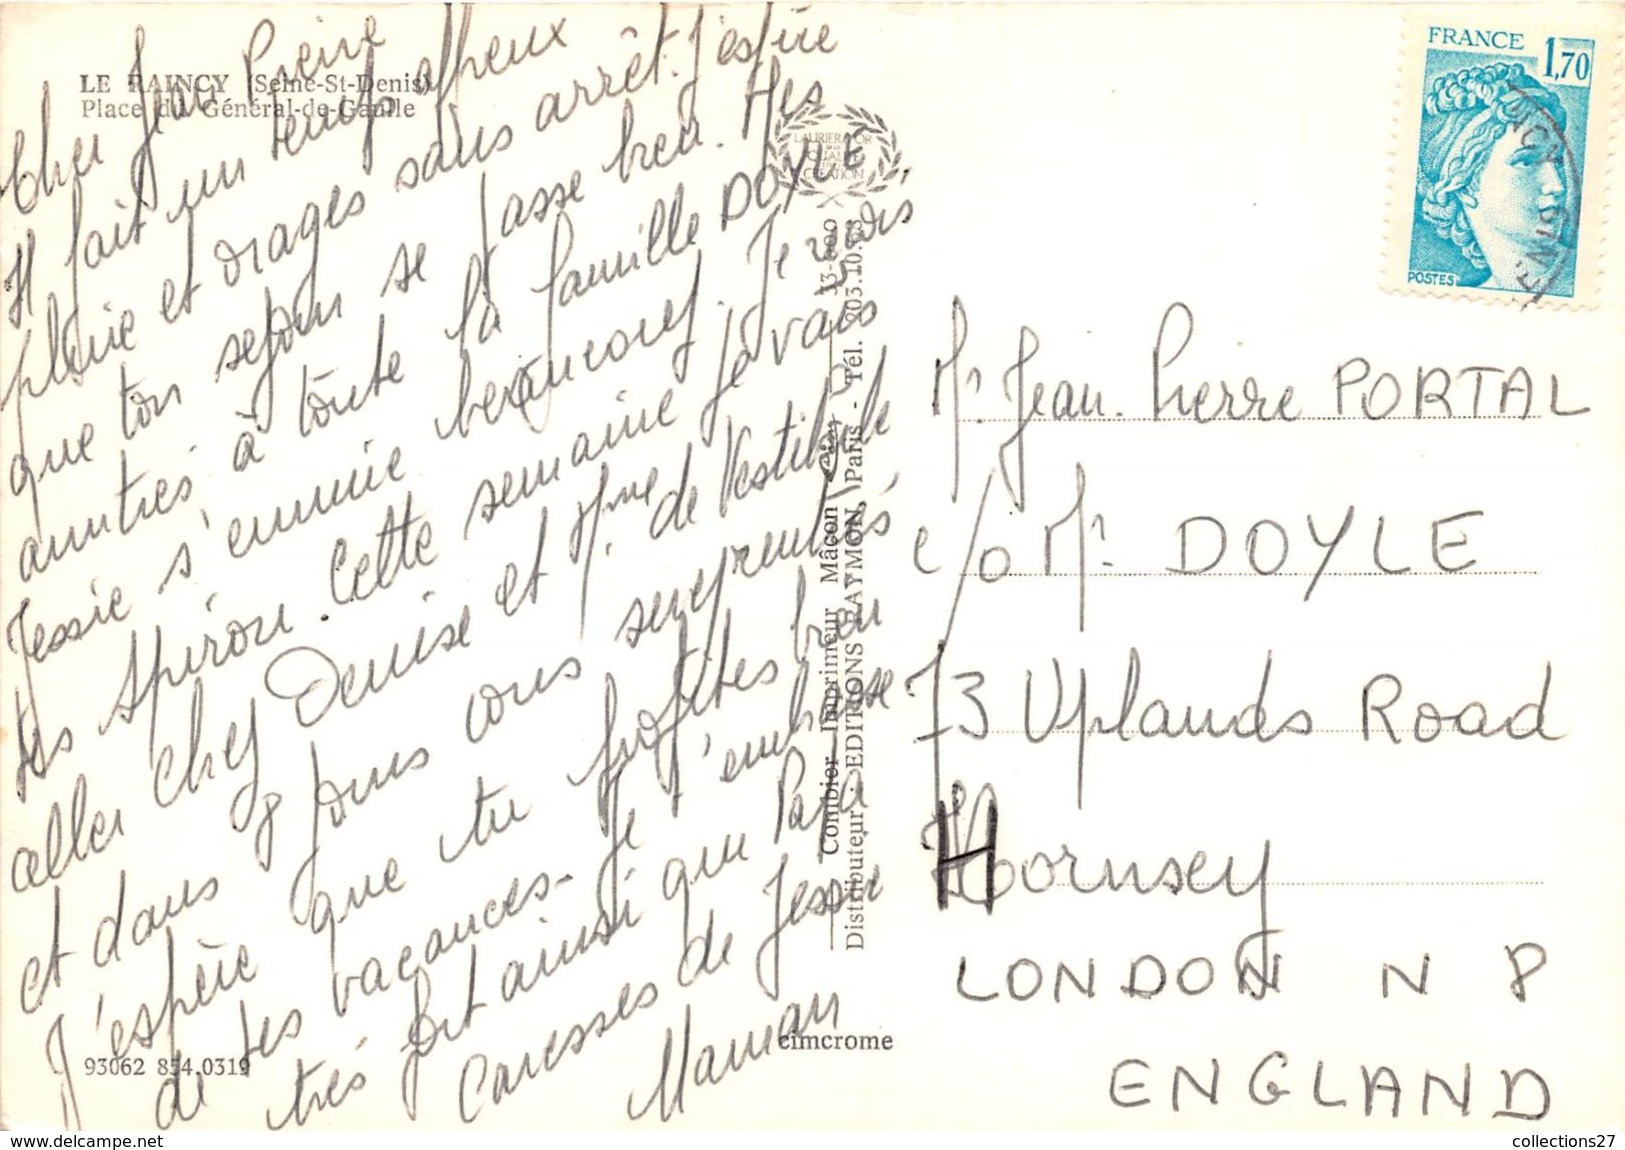 LE RAINCY (Seine-St-Denis)
Place du Général-de-Gaulle
Cher Jean Pierre
Il fait un temps affreux
pluie et orages sans arrêt. J'espère
que ton sejour se passe bien. Mes
amitiés à toute la famille DOYLE
Jessie s'ennuie beaucoup. Je
tes Spirou. Cette semaine je vais
aller chez Denise et Mme de
et dans 8 jours nous
J'espère que tu profites bien
de tes vacances. Je t'embrasse
très fort ainsi que Papa
Caresses de Jessie
Maman
93062 854.0319
cimcrome
LAURIER D'OR
DE LA
QUALITÉ
CRÉATION
Combier Imprimeur Mâcon
Distributeur : EDITIONS RAYMON, Paris - Tél. 203.10.
FRANCE
1,70
POSTES
Mr Jean-Pierre PORTAL
c/o Mr DOYLE
73 Uplands Road
Hornsey
LONDON N 8
ENGLAND
collections27